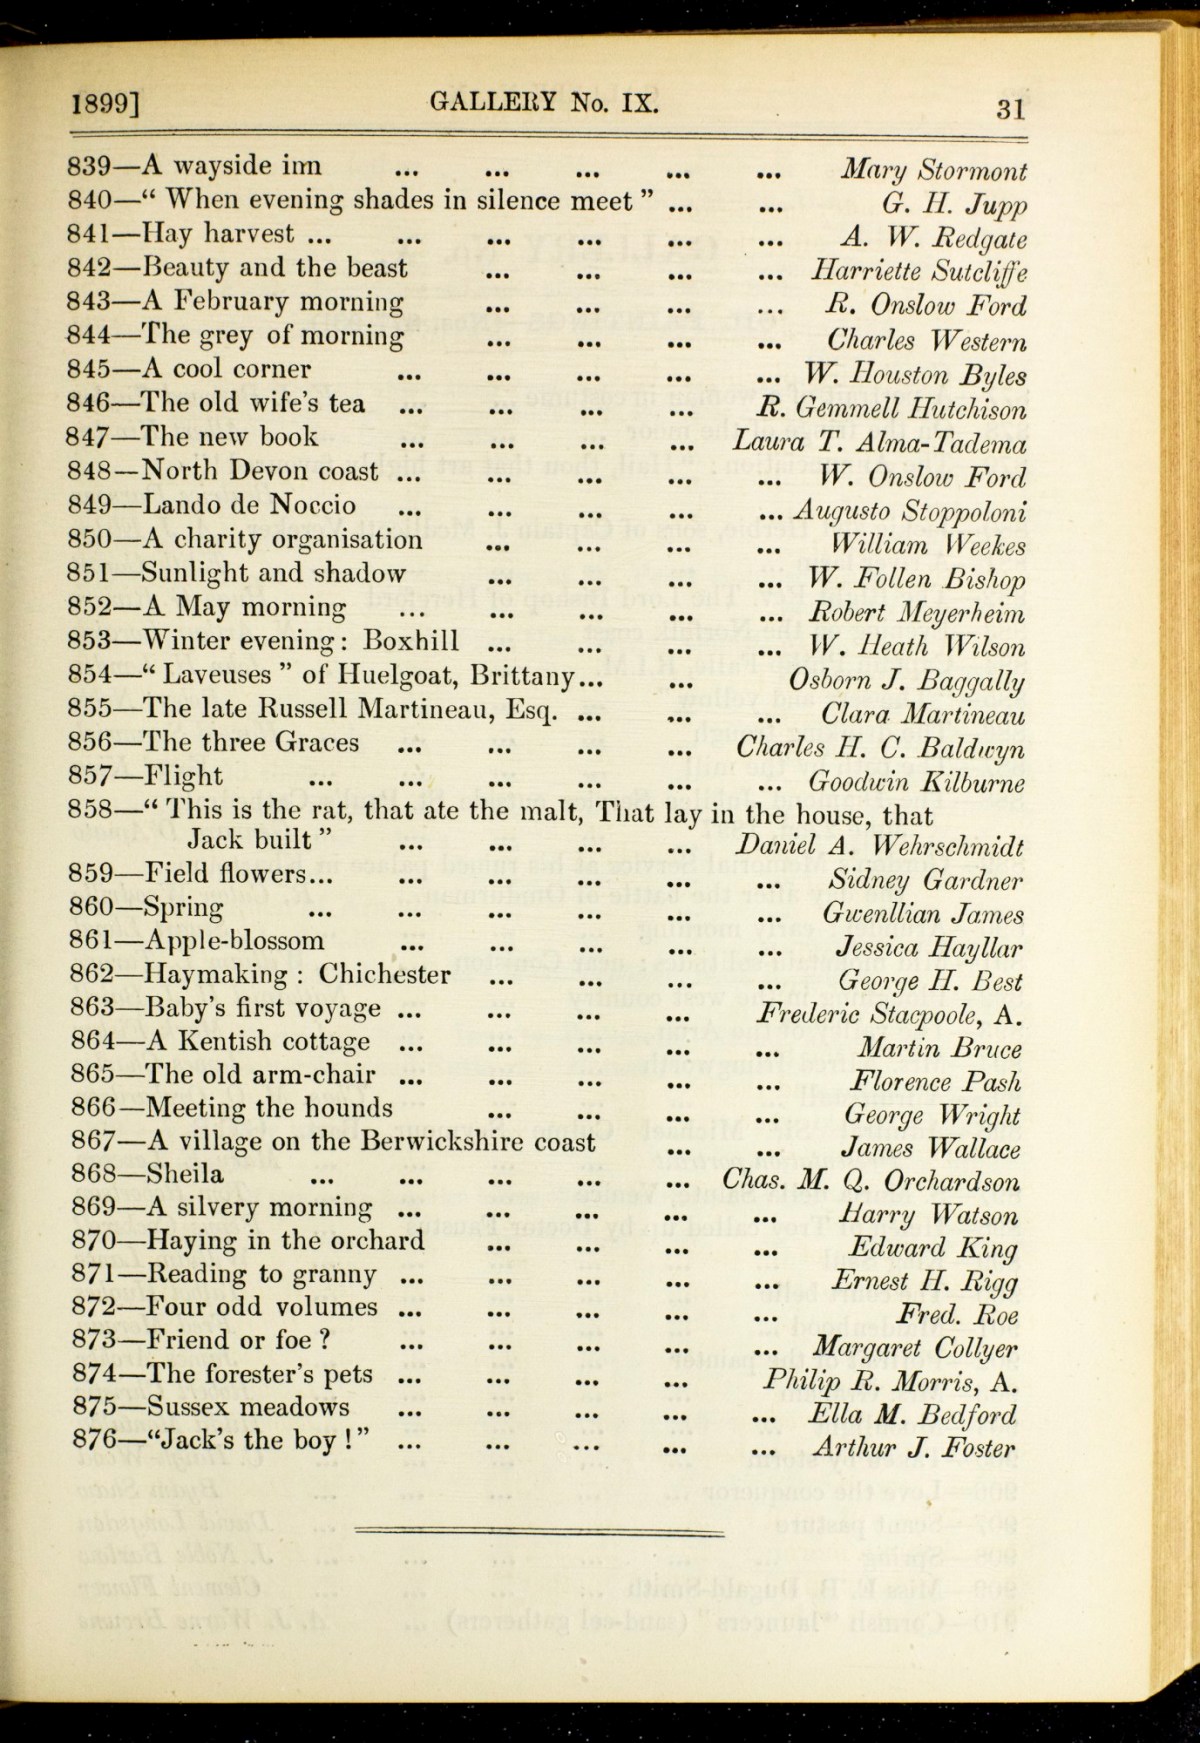 1899] GALLERY No. IX. 31
839—A wayside inn ... ... ... ... ... Mary Stormont
840—“ When evening shades in silence meet ” ... ... G. H. Jupp
841—Hay harvest ... ... ... ... ... ... A. W. Redgate
842—Beauty and the beast ... ... ... ... Harriette Sutcliffe
843—A February morning ... ... ... ... R. Onslow Ford
844—The grey of morning ... ... ... ... Charles Western
845—A cool corner ... ... ... ... ... W. Houston Byles
846—The old wife's tea ... ... ... ... R. Gemmell Hutchison
847—The new book ... ... ... ... Laura T. Alma-Tadema
848—North Devon coast ... ... ... ... ... W. Onslow Ford
849—Lando de Noccio ... ... ... ... ... Augusto Stoppoloni
850—A charity organisation ... ... ... ... William Weekes
851—Sunlight and shadow ... ... ... ... W. Follen Bishop
852—A May morning ... ... ... ... ... Robert Meyerheim
853—Winter evening : Boxhill ... ... ... ... W. Heath Wilson
854—“ Laveuses ” of Huelgoat, Brittany... ... Osborn J. Baggally
855—The late Russell Martineau, Esq. ... ... ... Clara Martineau
856—The three Graces ... ... ... ... Charles H. C. Baldwyn
857—Flight ... ... ... ... ... ... Goodwin Kilburne
858—“ This is the rat, that ate the malt, That lay in the house, that
Jack built ” ... ... ... ... Daniel A. Wehrschmidt
859—Field flowers... ... ... ... ... ... Sidney Gardner
860—Spring ... ... ... ... ... ... Gwenllian James
861—Apple-blossom ... ... ... ... ... Jessica Hayllar
862—Haymaking : Chichester ... ... ... ... George H. Best
863—Baby's first voyage ... ... ... ... Frederic Stacpoole, A.
864—A Kentish cottage ... ... ... ... ... Martin Bruce
865—The old arm-chair ... ... ... ... ... Florence Pash
866—Meeting the hounds ... ... ... ... George Wright
867—A village on the Berwickshire coast ... ... James Wallace
868—Sheila ... ... ... ... ... Chas. M. Q. Orchardson
869—A silvery morning ... ... ... ... ... Harry Watson
870—Haying in the orchard ... ... ... ... Edward King
871—Reading to granny ... ... ... ... ... Ernest H. Rigg
872—Four odd volumes ... ... ... ... ... Fred. Roe
873—Friend or foe ? ... ... ... ... ... Margaret Collyer
874—The forester's pets ... ... ... ... Philip R. Morris, A.
875—Sussex meadows ... ... ... ... ... Ella M. Bedford
876—“Jack's the boy ! ” ... ... ... ... ... Arthur J. Foster